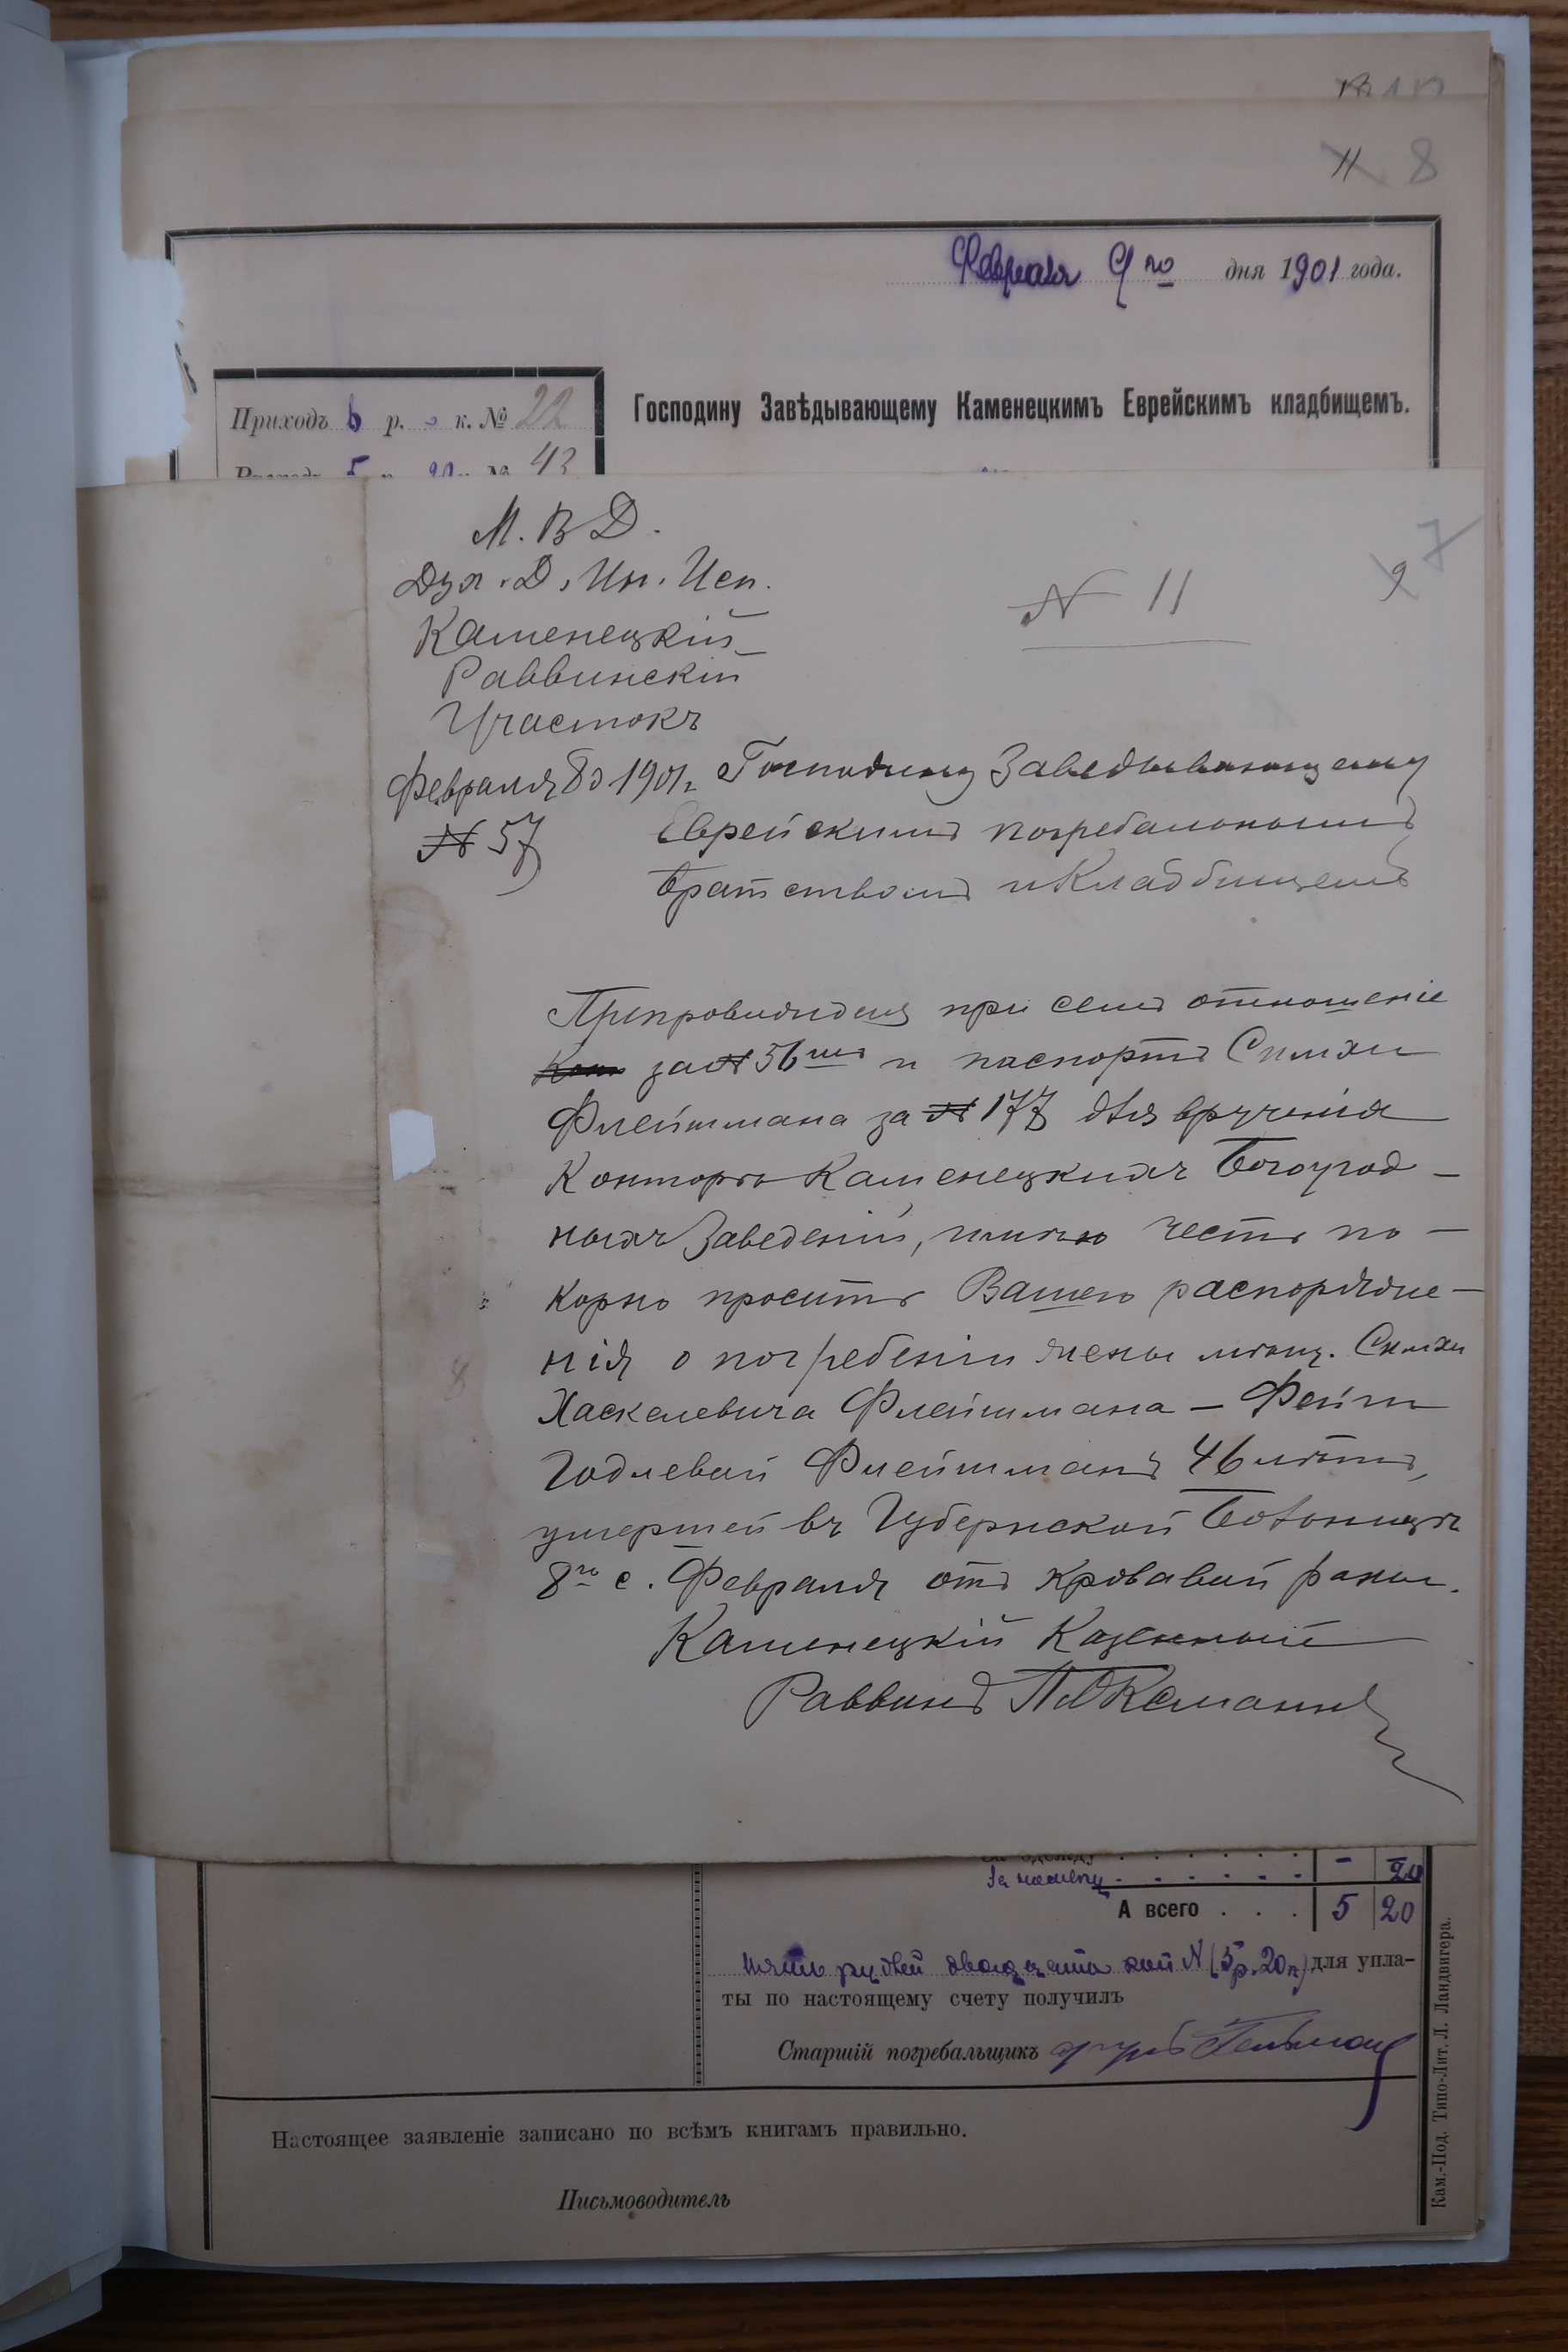 11 8
Февраля 9го дня 1901 года.
Приходъ 6 р. - к. № 22
43
Господину Завѣдывающему Каменецкимъ Еврейскимъ кладбищемъ.
М. В Д.
Дух. Д. Ин. Исп.
Каменецкій
Раввинскій
Участокъ
Февраля 8д 1901 г.
№ 57
№ 11
9 7
Господину Заведывающему
Еврейскимъ погребальнымъ
братствомъ и Кладбищемъ
Препровождая при семъ отношеніе
за № 56мъ и паспортъ Симхи
Флейшмана за № 177 для врученія
Конторѣ Каменецкихъ Богоугод-
ныхъ Заведеній, имѣю честь по-
корно просить Вашего распоряже-
нія о погребеніи жены мѣщ. Симхи
Хаскелевича Флейшмана - Фейги
Годлевой Флейшманъ 46 лѣтъ,
умершей въ Губернской Больницѣ
8го с. Февраля отъ кровавой раны.
Каменецкій Казенный
Раввинъ
- 20
А всего . . . 5 20
пять рублей двадцать коп (5 р. 20 к) для упла-
ты по настоящему счету получилъ
Старшій погребальщикъ
Настоящее заявленіе записано по всѣмъ книгамъ правильно.
Письмоводитель
Кам.-Под. Типо-Лит. Л. Ландвигера.